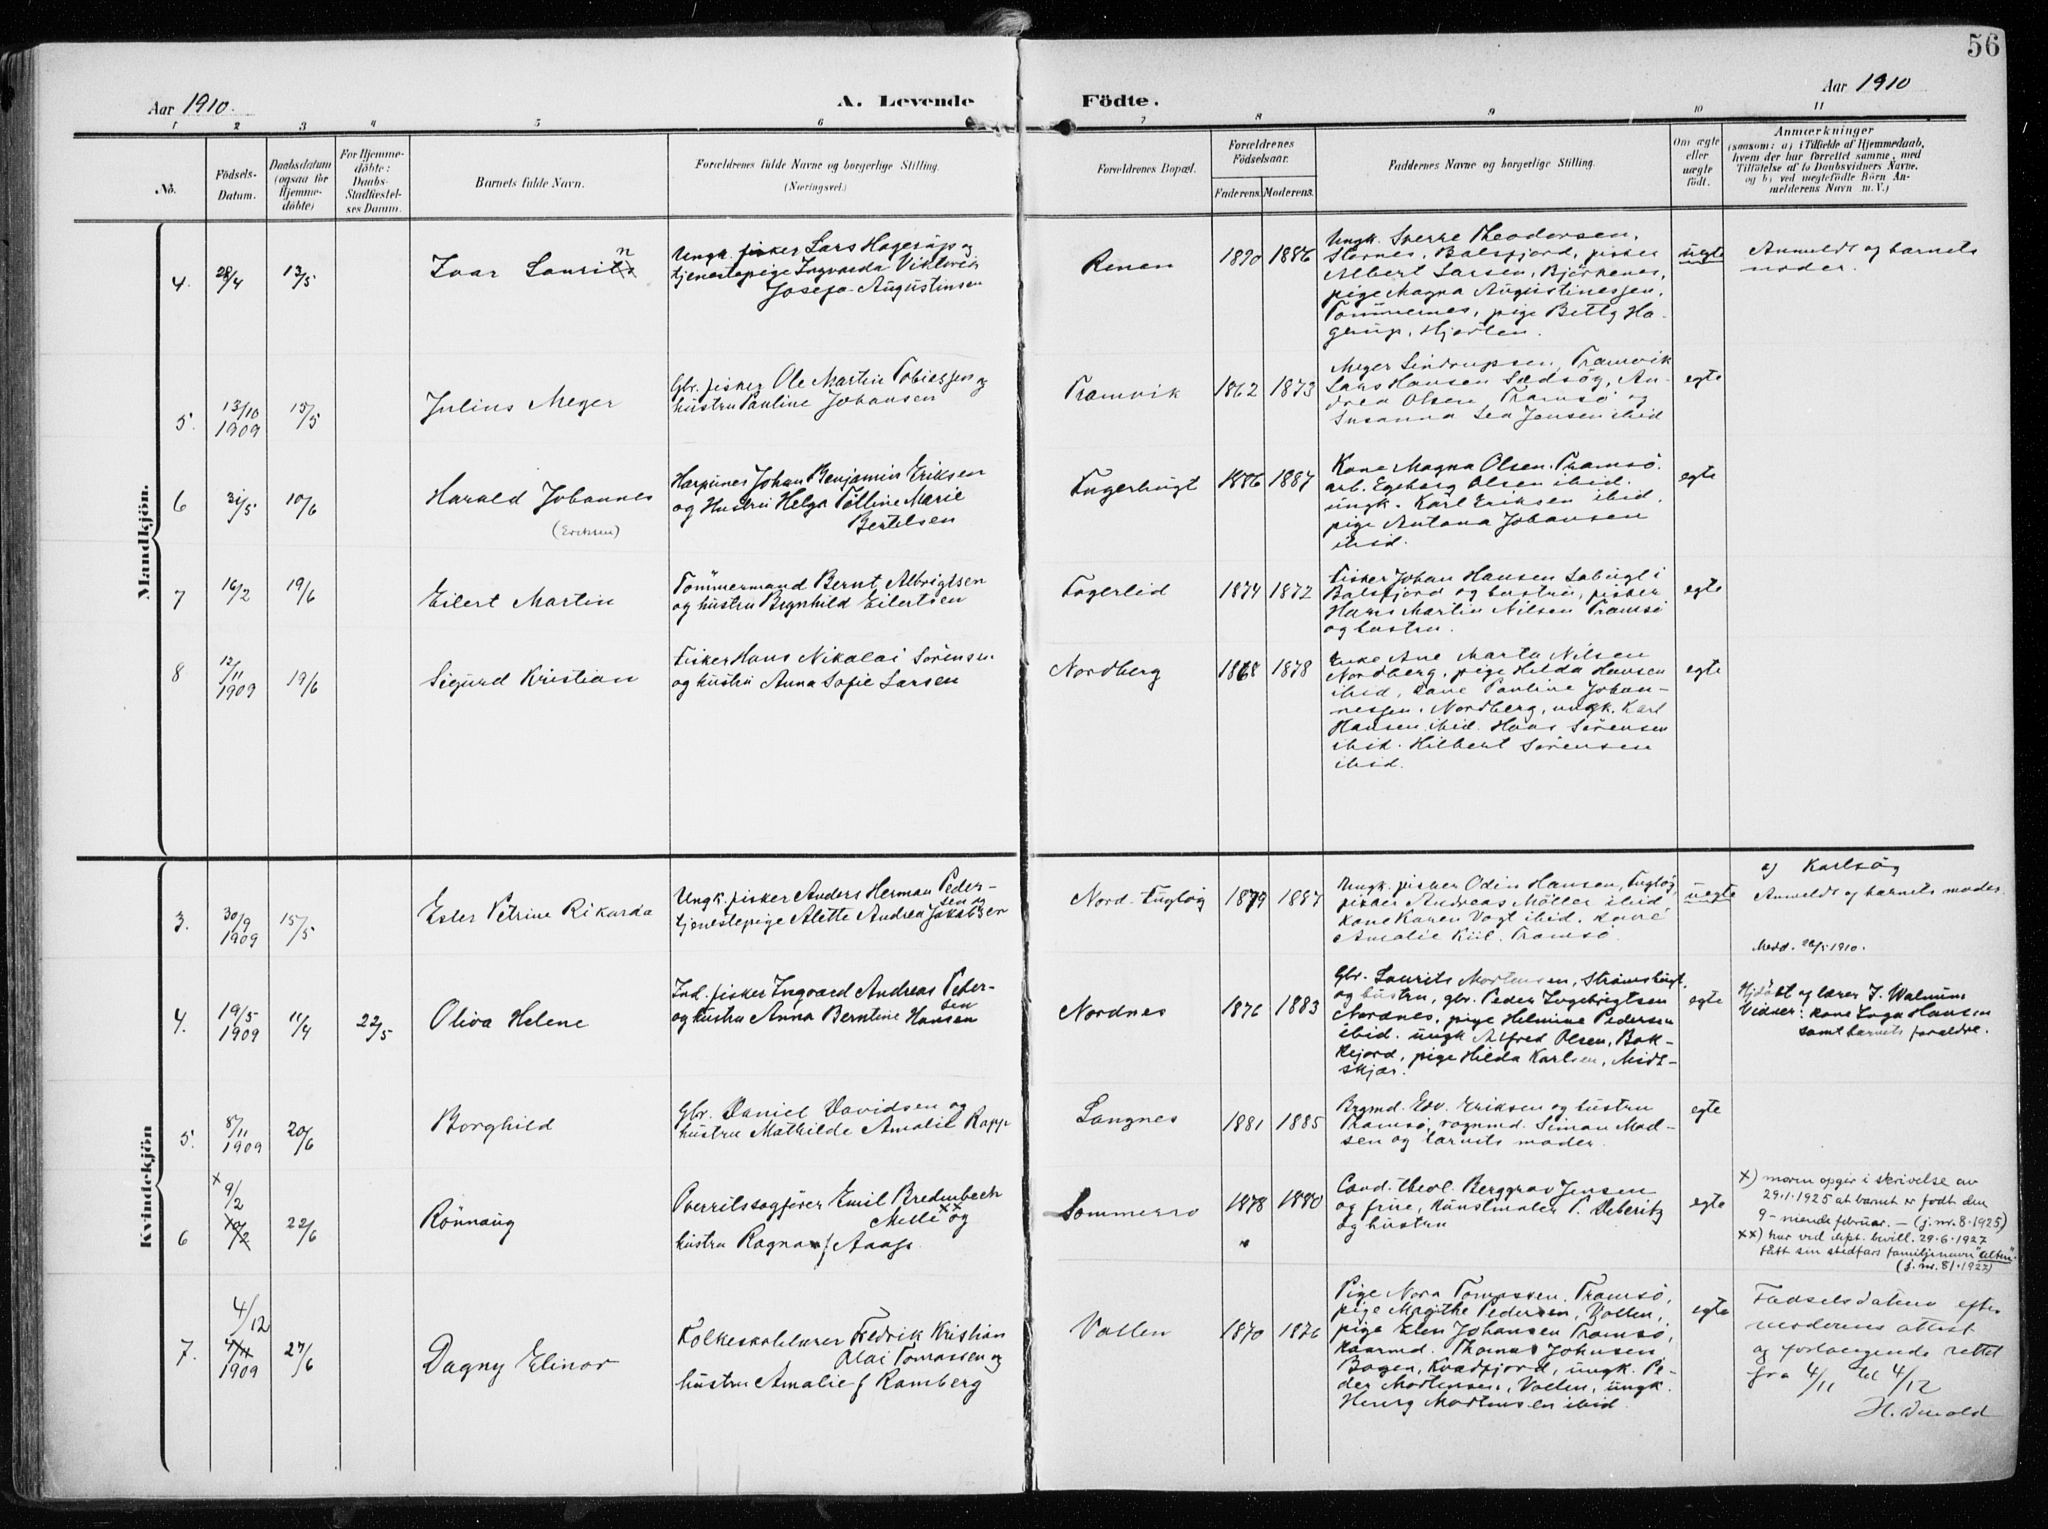 56
Aar 1910.
A. Levende
Födte.
Aar 1910
1 2 3 4 5 6 7 8 9 10 11
No.
Födsels-
Datum.
Daabsdatum
(ogsaa for
Hjemme-
döbte)
For Hjemme-
döbte:
Daabs-
Stadfæstel-
ses Datum.
Barnets fulde Navn.
Forældrenes fulde Navne og borgerlige Stilling.
(Næringsvei.)
Forældrenes Bopæl.
Forældrenes
Födselsaar.
Faderens. Moderens.
Faddernes Navne og borgerlige Stilling.
Om ægte
eller
uægte
født.
Anmærkninger
(saasom: a) i Tilfælde af Hjemmedaab,
hvem der har forrettet samme, med
Tilföielse af to Daabsvidners Navne,
og b) ved uægtefödte Börn An-
melderens Navn m. V.)
Mandkjön.
4. 28/4 13/5
Ivar Laurits
Ungk. fisker Lars Hagerup og
tjenestepige Ingvarda Viktoria
Josefa Augustinsen
Renen
1890 1886
Ungk. Sverre Theodorsen,
Stornes, Balsfjord, fisker
Albert Larsen, Björkenes,
pige Magna Augustinessen,
Tömmernes, pige Betty Ha-
gerup, Hjorten.
uegte
Anmeldt og barnets
moder.
5. 13/10 1909 15/5
Julius Meyer
Gbr. fisker Ole Martin Tobiassen og
hustru Pauline Johansen
Tromvik
1862 1873
Meyer Sindrupsen, Tromvik
Lars Hansen Sædsøg, An-
drea Olsen Tromsø og
Susanna Lea Jensen ibid
egte
6 31/5 10/6
Harald Johannes
(Eriksen)
Harpuner Johan Benjamin Eriksen
og Hustru Helga Tolline Marie
Bertelsen
Fagerhugt
1886 1887
Kone Magna Olsen. Tromsø.
arb. Egeberg Olsen ibid.
ungk. Karl Eriksen ibid.
pige Antona Johansen
ibid.
egte
7 16/2 19/6
Eilert Martin
Tömmermand Bernt Albrigtsen
og hustru Brynhild Eilertsen
Fagerlid
1874 1872
Fisker Johan Hansen
Balsfjord og hustru, fisker
Hans Martin Nilsen Tromsø
og hustru.
egte
8 12/11 1909 19/6
Sigurd Kristian
Fisker Hans Nikolai Sørensen
og hustru Anna Sofie Larsen
Nordberg
1868 1878
Enke Ane Marta Nilsen
Nordberg, pige Hilda Hansen
ibid, kone Pauline Johan-
nessen, Nordberg, ungk. Karl
Hansen ibid. Hans Sørensen
ibid. Hilbert Sørensen
ibid.
egte
Kvindekjön
3. 30/9 1909 15/5
Ester Petrine Rikarda
Ungk. fisker Anders Herman Peder-
sen og
tjenestepige Alette Andrea Jakobsen
Nord-Fugløy
1879 1887
Ungk. fisker Odin Hansen, Fugløy
fisker Andreas Möller ibid
kone Karen Vogt ibid. kone
Amalie Kiil. Tromsø.
uegte
a) Karlsøy
Anmeldt og barnets moder.
Medd. 1910.
4. 19/5 1909 11/4 22/5
Oliva Helene
Ind. fisker Ingvard Andreas Peder-
sen
og hustru Anna Berntine Hansen
Nordnes
1876 1883
Gbr. Laurits Mortensen, Strömshugt
og hustru, gbr. Peder Ingebrigtsen
Nordnes, pige Helmine Pedersen
ibid. ungk Alfred Olsen, Bak-
kejord, pige Hilda Karlsen, Midt-
skjær.
egte
Hjdøbt af lærer J. Walnum
Vidner: kone Inga Hansen
samt barnets forældre.
5. 8/11 1909 20/6
Borghild
Gbr. Daniel Davidsen og
hustru Mathilde Amalie Rapp
Langnes
1881 1885
Brgmd. Edv. Eriksen og hustru
Tromsø, vognmd. Simon Mad-
sen og barnets moder.
egte
6 x 9/2 10/2 22/6
Rönnaug
Overretssagförer Emil Bredenbech
Melle xx og
hustru Ragna f. Aaas.
Sommerro
1878 1880
Cand. theol. Berggrav Jensen
og frue, Kunstmaler T. Deberitz
og hustru
egte
x) moren opgir i skrivelse av
29.1.1925 at barnet er født den
9-niende februar. - (j.nr. 8.1925)
xx) har ved dept. bevill. 29.6.1927
fått sin stedfars familjenavn "Alten".
(j.nr. 81.1927)
7. 4/12 4/11 1909 27/6
Dagny Elinor
Folkeskolelærer Fredrik Kristian
Olai Tomassen og
hustru Amalie f Ramberg
Vollen
1870 1876
Pige Nora Tomassen. Tromsø,
pige Magithe Pedersen, Vollen,
pige Elen Johansen Tromsø,
Kaarmd. Thomas Johnsen
Bogen, Kvædfjord, ungk. Pe-
der Mortensen, Vollen, ungk.
Henry Mortensen ibid.
egte
Fødselsdatum efter
moderens attest
og forlangende rettet
fra 4/11 til 4/12